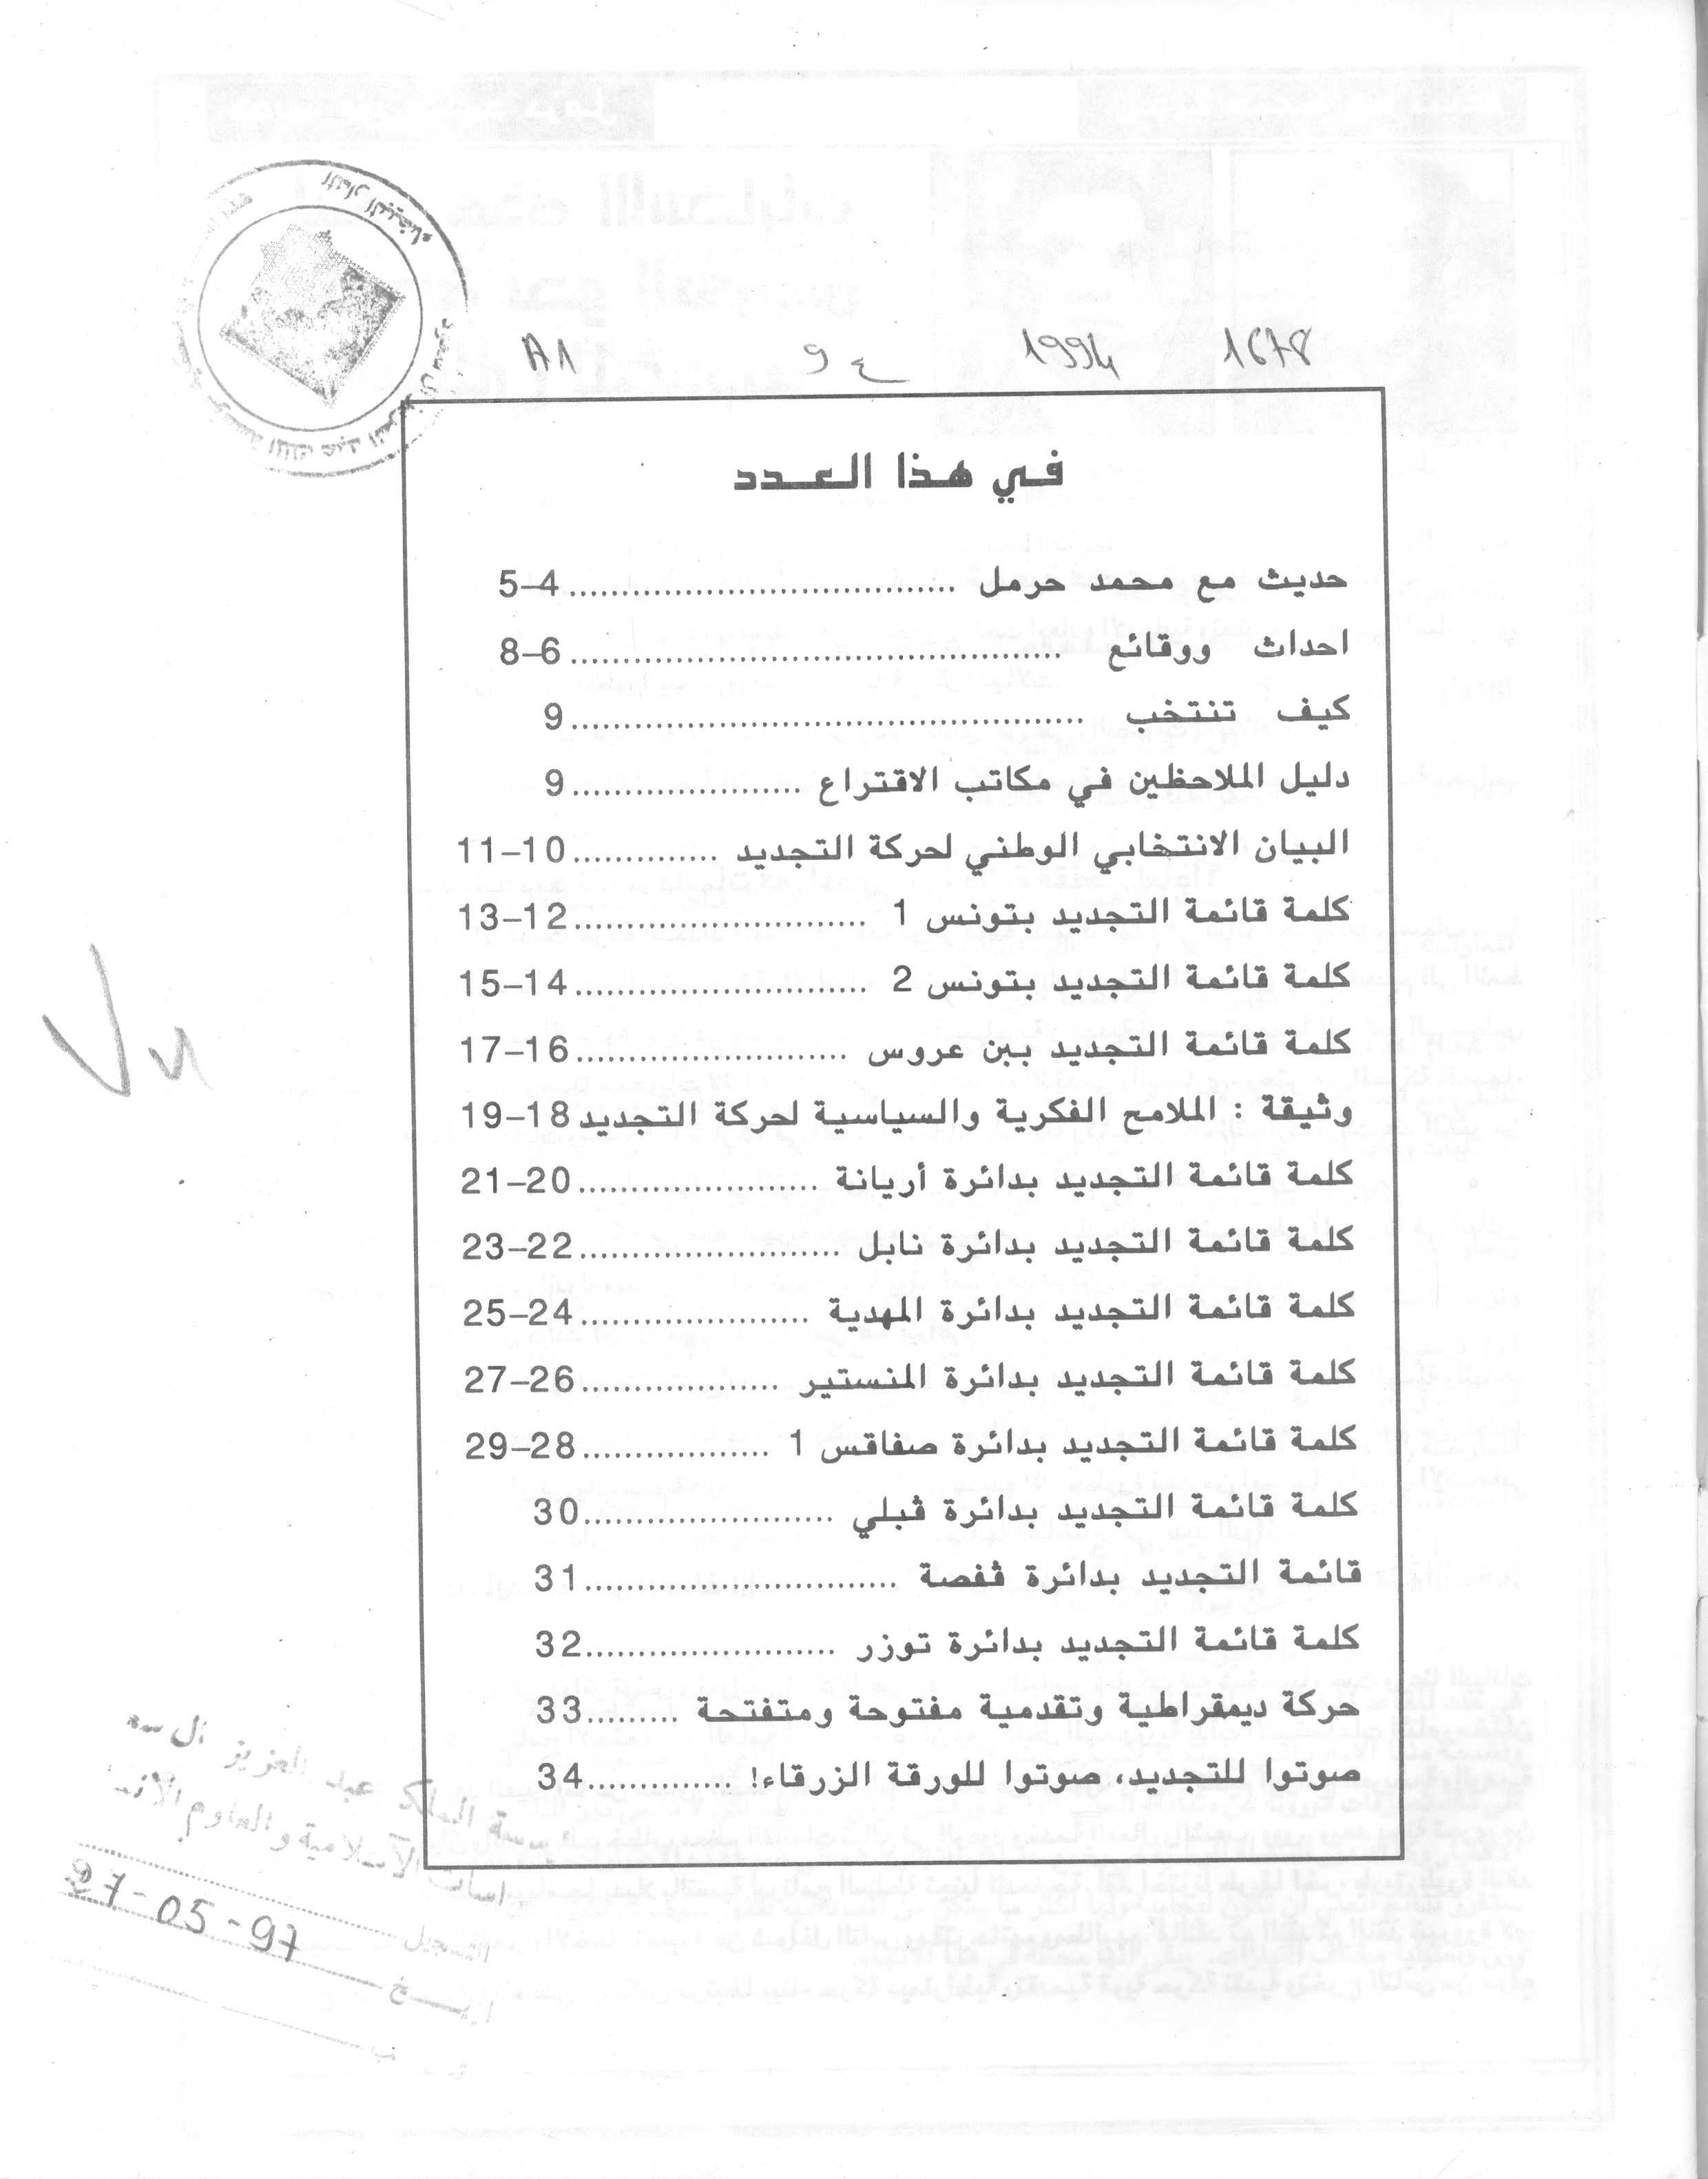 A1 9 ع 1994 1678
في هذا العدد
حديث مع محمد حرمل ....................................5-4
احداث ووقائع ..............................................8-6
كيف تنتخب ................................................9
دليل الملاحظين في مكاتب الاقتراع ......................9
البيان الانتخابي الوطني لحركة التجديد ..............11-10
كلمة قائمة التجديد بتونس 1 ............................13-12
كلمة قائمة التجديد بتونس 2 ............................15-14
كلمة قائمة التجديد ببن عروس ..........................17-16
وثيقة : الملامح الفكرية والسياسية لحركة التجديد 19-18
كلمة قائمة التجديد بدائرة أريانة .......................21-20
كلمة قائمة التجديد بدائرة نابل .........................23-22
كلمة قائمة التجديد بدائرة المهدية ......................25-24
كلمة قائمة التجديد بدائرة المنستير ...................27-26
كلمة قائمة التجديد بدائرة صفاقس 1 ..................29-28
كلمة قائمة التجديد بدائرة ڤبلي ........................30
قائمة التجديد بدائرة ڤفصة ..............................31
كلمة قائمة التجديد بدائرة توزر ........................32
حركة ديمقراطية وتقدمية مفتوحة ومتفتحة .........33
صوتوا للتجديد، صوتوا للورقة الزرقاء! ..............34
27-05-97